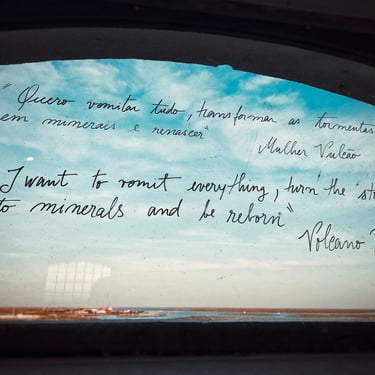 "Quero vomitar tudo, transformar as tormentas
em minerais e renascer"
Mulher Vulcão
I want to vomit everything, turn the
to minerals and be reborn"
Volcano